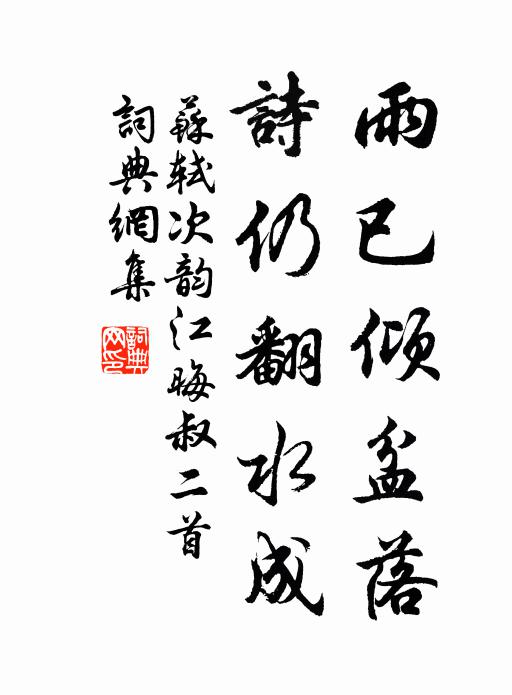 雨已傾盆落
詩仍翻水成
蘇軾次韵江晦叔二首
詞典網集
詞典网印